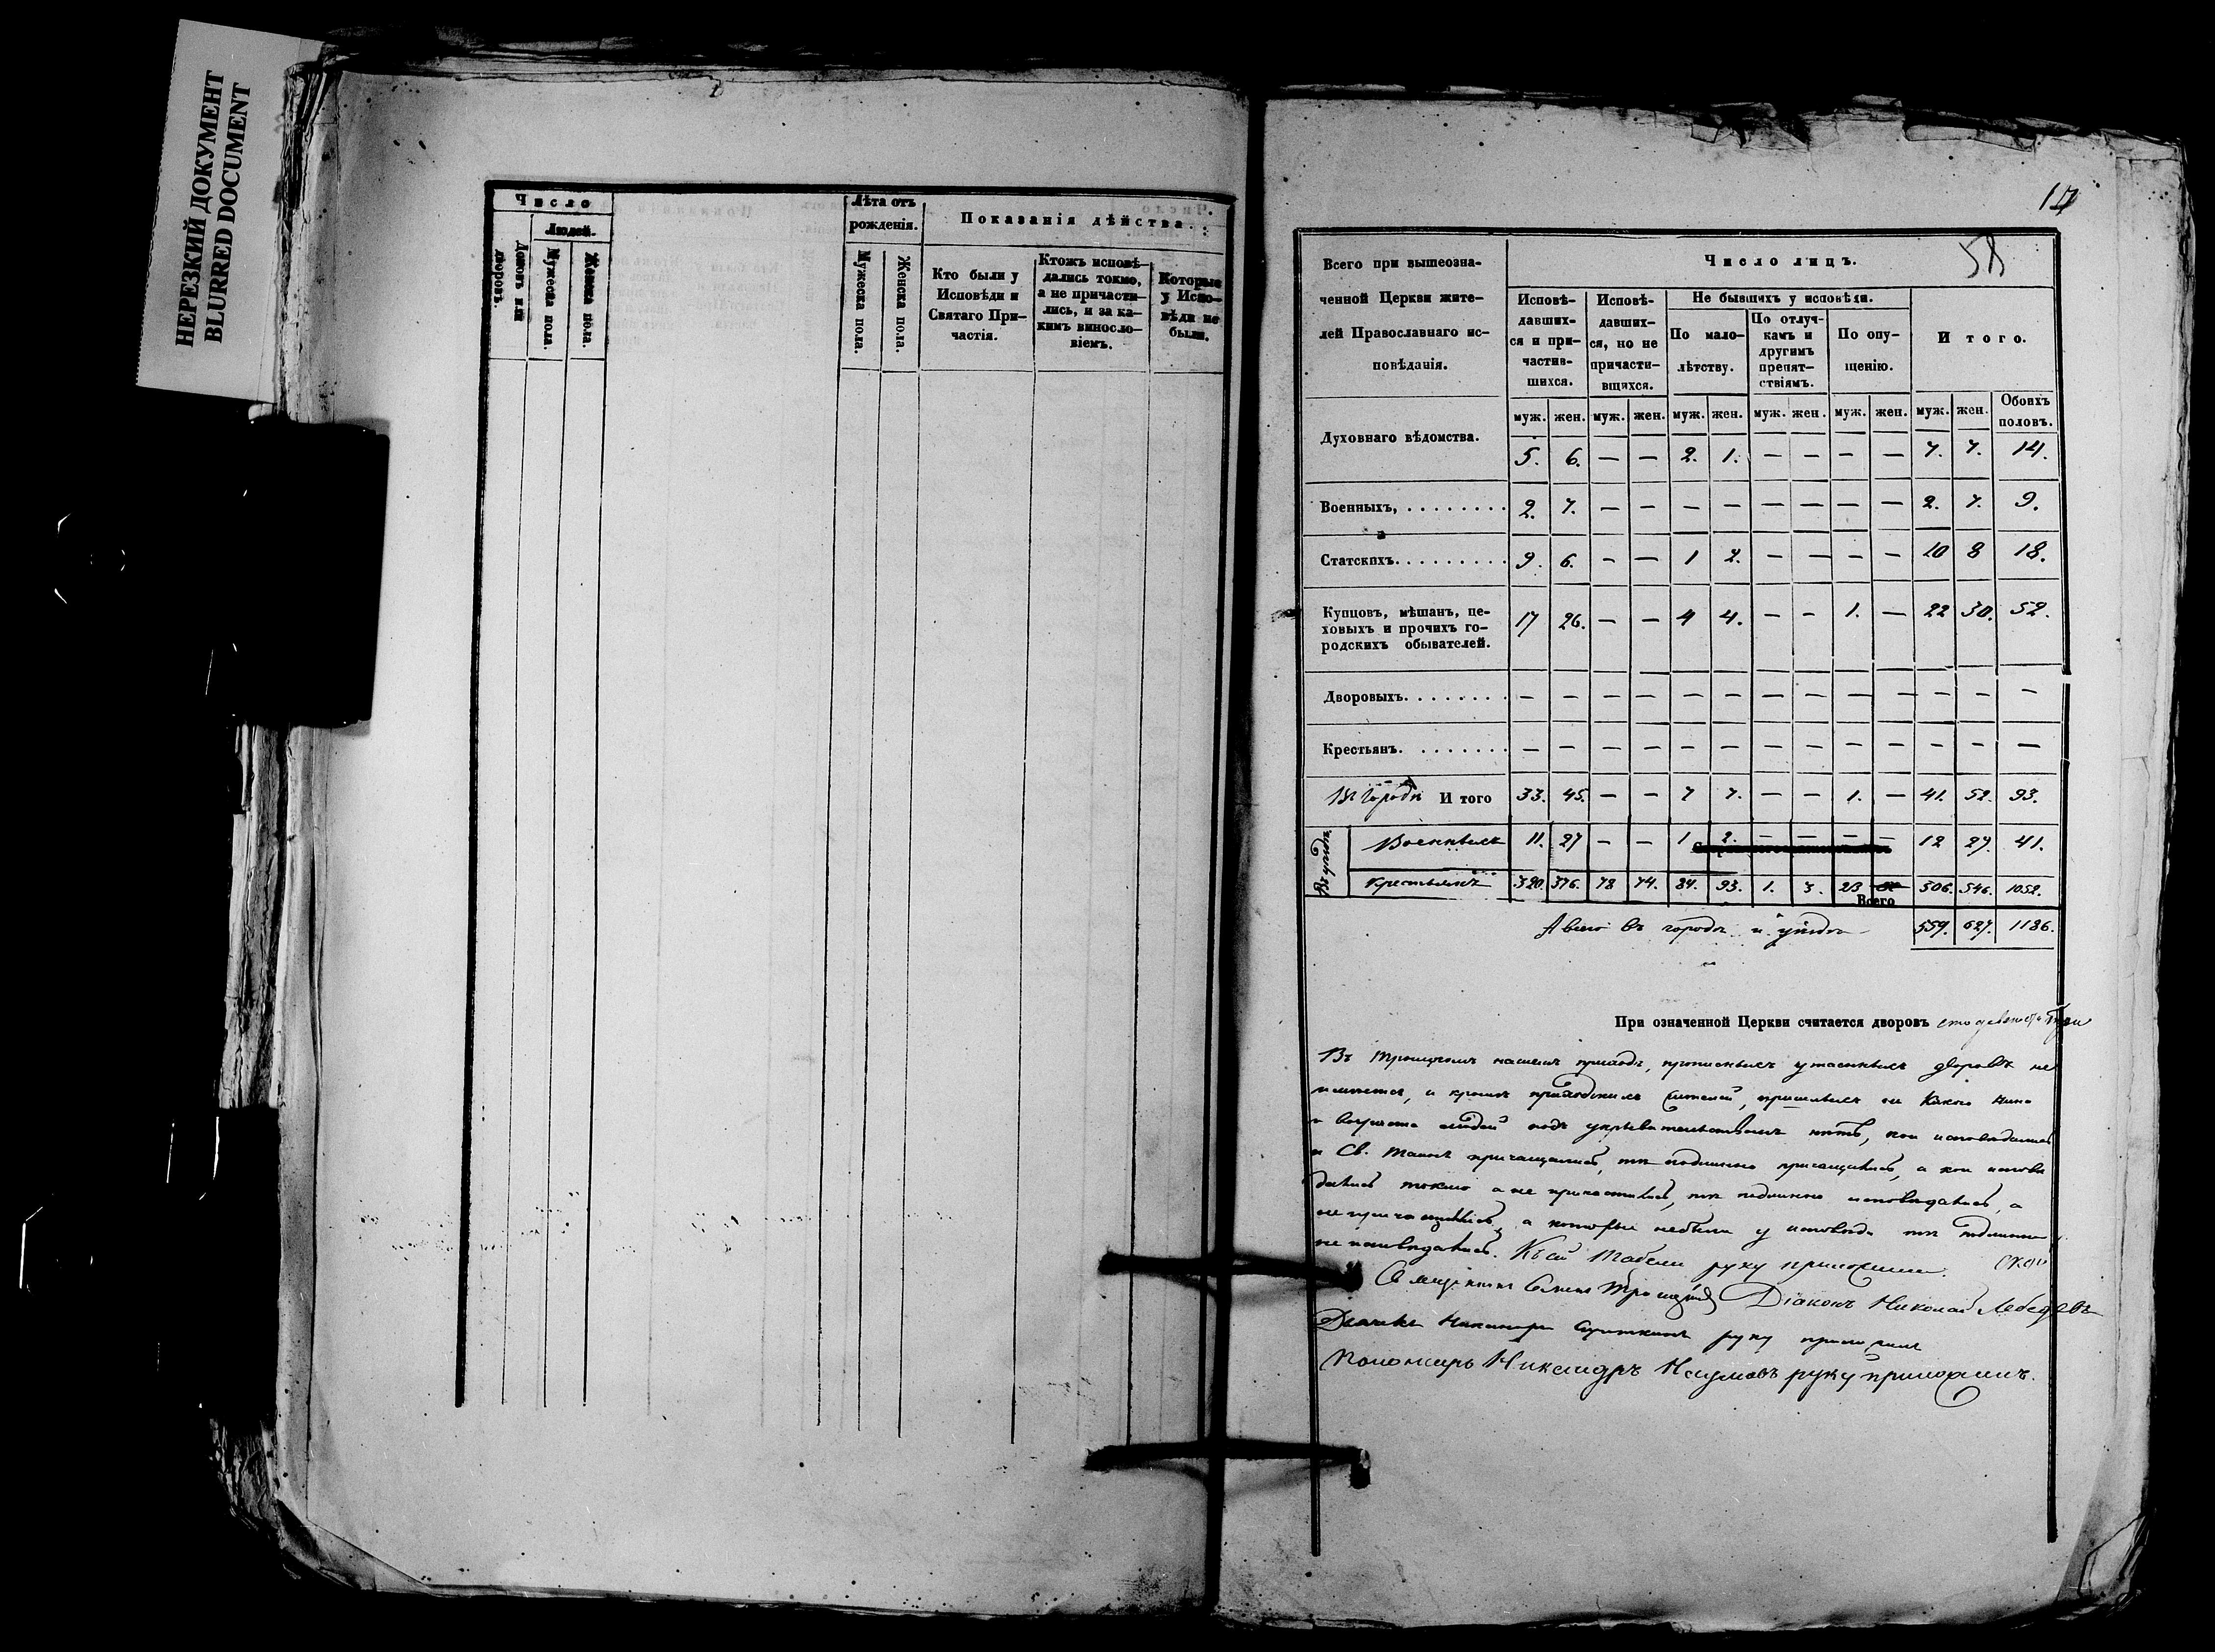 НЕРЕЗКИЙ ДОКУМЕНТ
BLURRED DOCUMENT
Число
Людей.
Домовъ или дворовъ.
Мужеска пола.
Женска пола.
Лѣта отъ рожденія.
Мужеска пола.
Женска пола.
Показанія дѣйства.
Кто были у Исповѣди и Святаго При-
частія.
Ктожъ исповѣ-
дались токмо,
а не причасти-
лись, и за ка-
кимъ виносло-
віемъ.
Которые
у Испо-
вѣди не
были.
58
Всего при вышеозна-
ченной Церкви жите-
лей Православнаго ис-
повѣданія.
Число лицъ.
Исповѣ-
давших-
ся и при-
частив-
шихся.
Исповѣ-
давших-
ся, но не
причасти-
вщихся.
Не бывшихъ у исповѣди.
По мало-
лѣтству.
По отлуч-
камъ и
другимъ
препят-
ствіямъ.
По опу-
щенію.
И того.
муж. жен. муж. жен. муж. жен. муж. жен. муж. жен. муж. жен. Обоихъ половъ.
Духовнаго вѣдомства. 5. 6. — — 2. 1. — — — — 7. 7. 14.
Военныхъ, 2. 7. — — — — — — — — 2. 7. 9.
Статскихъ 9. 6. — — 1 2. — — — — 10 8 18.
Купцовъ, мѣшан, це-
ховыхъ и прочихъ го-
родскихъ обывателей. 17 26. — — 4 4. — — 1. — 22 30. 52.
Дворовыхъ — — — — — — — — — — — — —
Крестьянъ. — — — — — — — — — — — — —
Въ городѣ И того 33. 45. — — 7 7. — — 1. — 41. 52. 93.
Въ уѣздѣ
Военныхъ 11. 27 — — 1 2. — — — — 12 29. 41.
Крестьянъ 320. 376. 78 74. 84. 93. 1. 3. 23 506. 546. 1052.
Всего
А всего въ городѣ и уѣздѣ 559. 627. 1186.
При означенной Церкви считается дворовъ сто девяносто три
Въ Троицкомъ нашемъ приходѣ, прописныхъ утаенныхъ дворовъ не
имѣется, и кромѣ приходскихъ жителей, пришлыхъ ни какого чина
и возраста людей подъ укрывательствомъ нѣтъ, кои исповѣдались
и Св. Таинъ причащались, тѣ подлинно причащались, а кои исповѣ
дались токмо а не причастились, тѣ подлинно исповѣдались, а
не причащались, а которые небыли у исповѣди тѣ подлинно
не исповѣдались. Къ сей Табели руку приложили.
Священникъ Троицкій Діаконъ Николай Лебедевъ
Дьячекъ руку приложилъ
Пономарь Никандръ Наумовъ руку приложилъ.